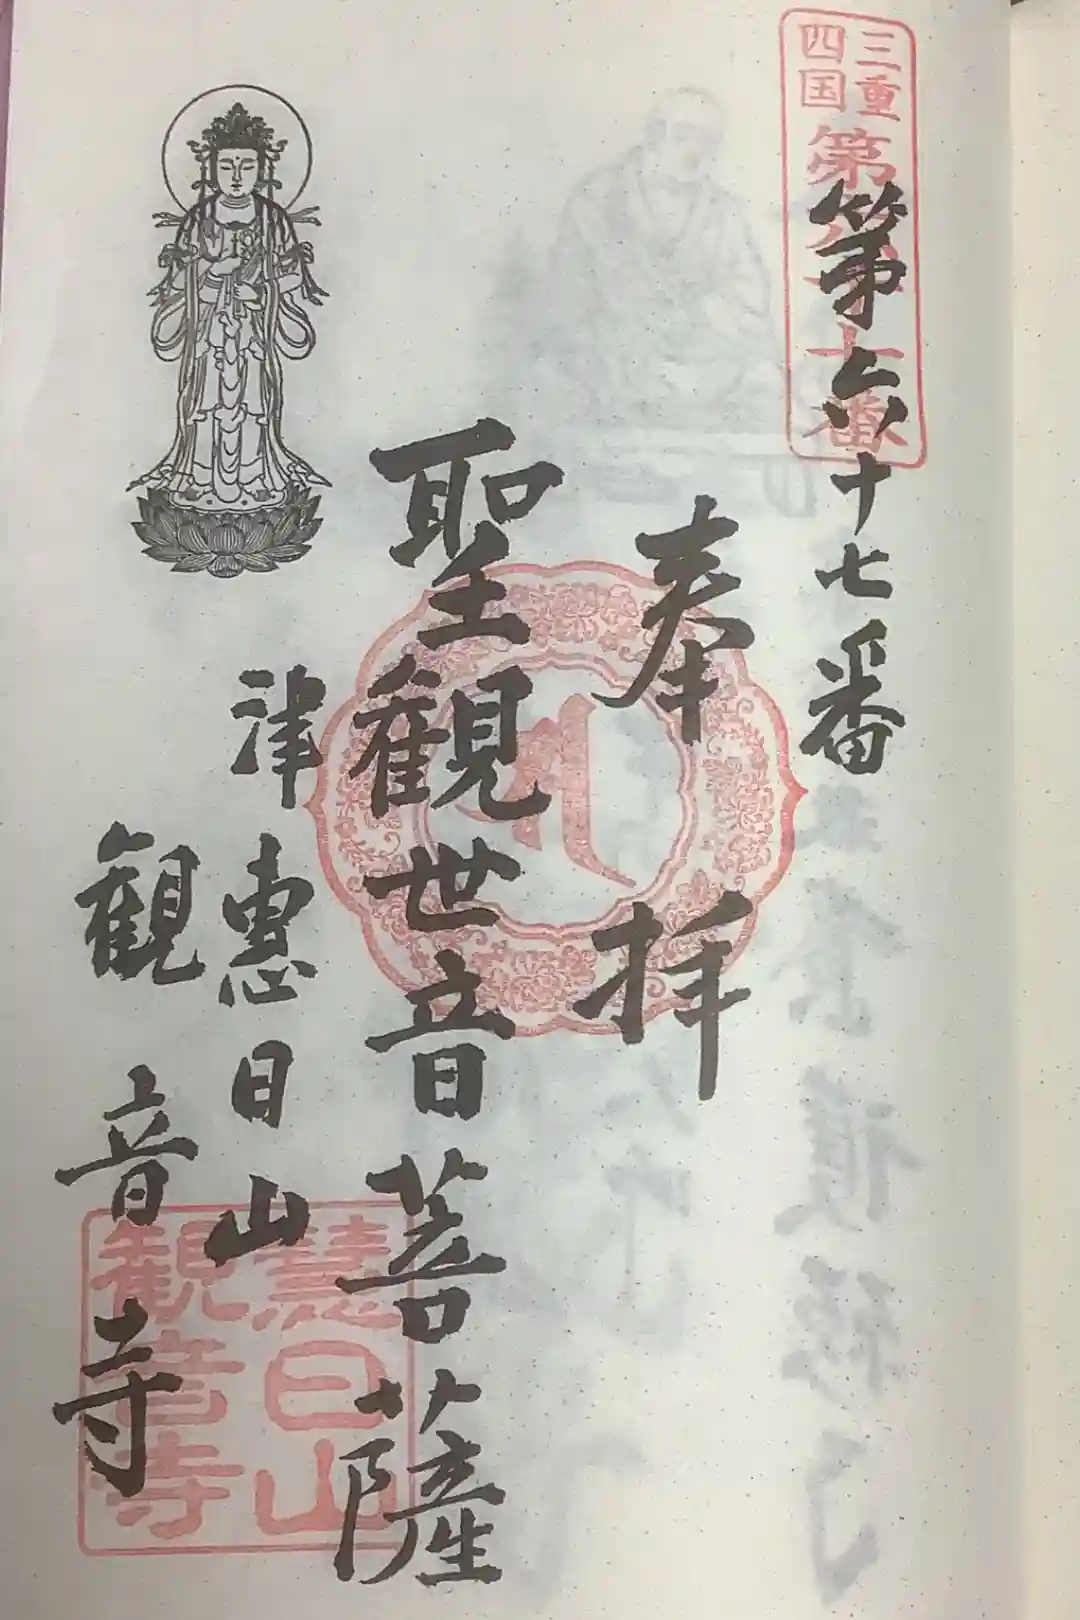 三重
四国
第六十七番
第六十七番
奉拝
聖観世音菩薩
津
恵日山
観音寺
慧日山
観音寺